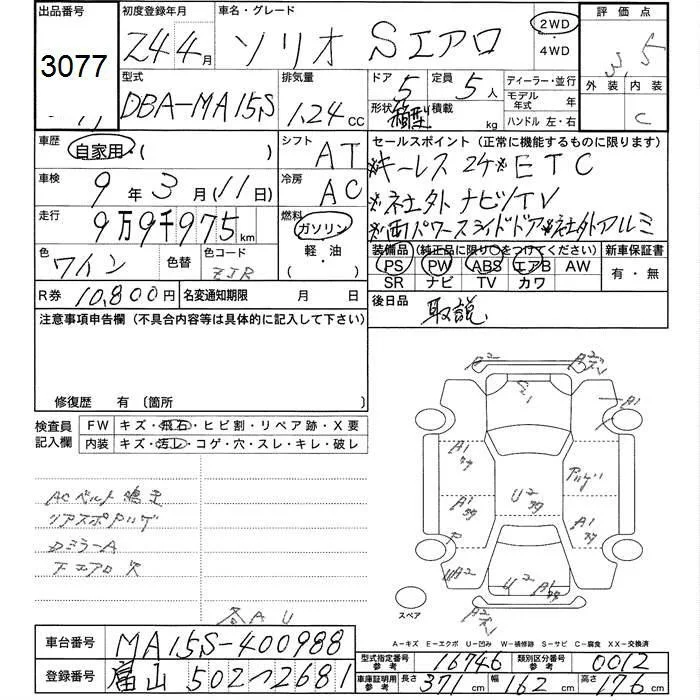 出品番号 初度登録年月 車名・グレード 2WD 評価点
3077 24年4月 ソリオ Sエアロ 4WD 3.5
型式 排気量 ドア 定員 ディーラー・並行 外装 内装
DBA-MA15S 1.24cc 5 5人 モデル年式 年 C
形状 箱型 積載 kg ハンドル 左・右
車歴 自家用・( ) シフト AT セールスポイント(正常に機能するものに限ります)
車検 9年3月(11日) 冷房 AC ※キーレス2ケ※ETC
走行 9万9千975km 燃料 ガソリン ※社外ナビ/TV
軽・油 ※両パワースライドドア※社外アルミ
色 ワイン 色替 色コード ZJR ( ) 装備品(純正品に限り○をつけてください) 新車保証書
PS PW ABS エアB AW 有・無
SR ナビ TV カワ
R券 10,800円 名変通知期限 月 日 後日品 取説
注意事項申告欄(不具合内容等は具体的に記入して下さい)
修復歴 有〔箇所 〕
検査員 FW キズ・飛石・ヒビ割・リペア跡・X要
記入欄 内装 キズ・汚レ・コゲ・穴・スレ・キレ・破レ
ACベルト鳴き
リアスポハゲ
Dミラー A
下エアロ穴
各AU
A2
A2
A1
A1
U2
A1
A1
U2
スペア
A-キズ E-エクボ U-凹み W-補修跡 S-サビ C-腐食 XX-交換済
車台番号 MA15S-400988 型式指定番号 参考 16746 類別区分番号 参考 0012
登録番号 富山 502 つ 2681 車庫証明用 参考 長さ 371cm 幅 162cm 高さ 176cm